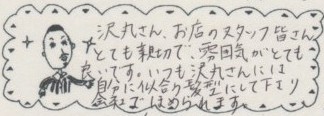 沢丸さん、お店のスタッフ皆さん
とても親切で、雰囲気がとても
良いです。いつも沢丸さんには
自分に似合う髪型にして下さり
会社でほめられます。